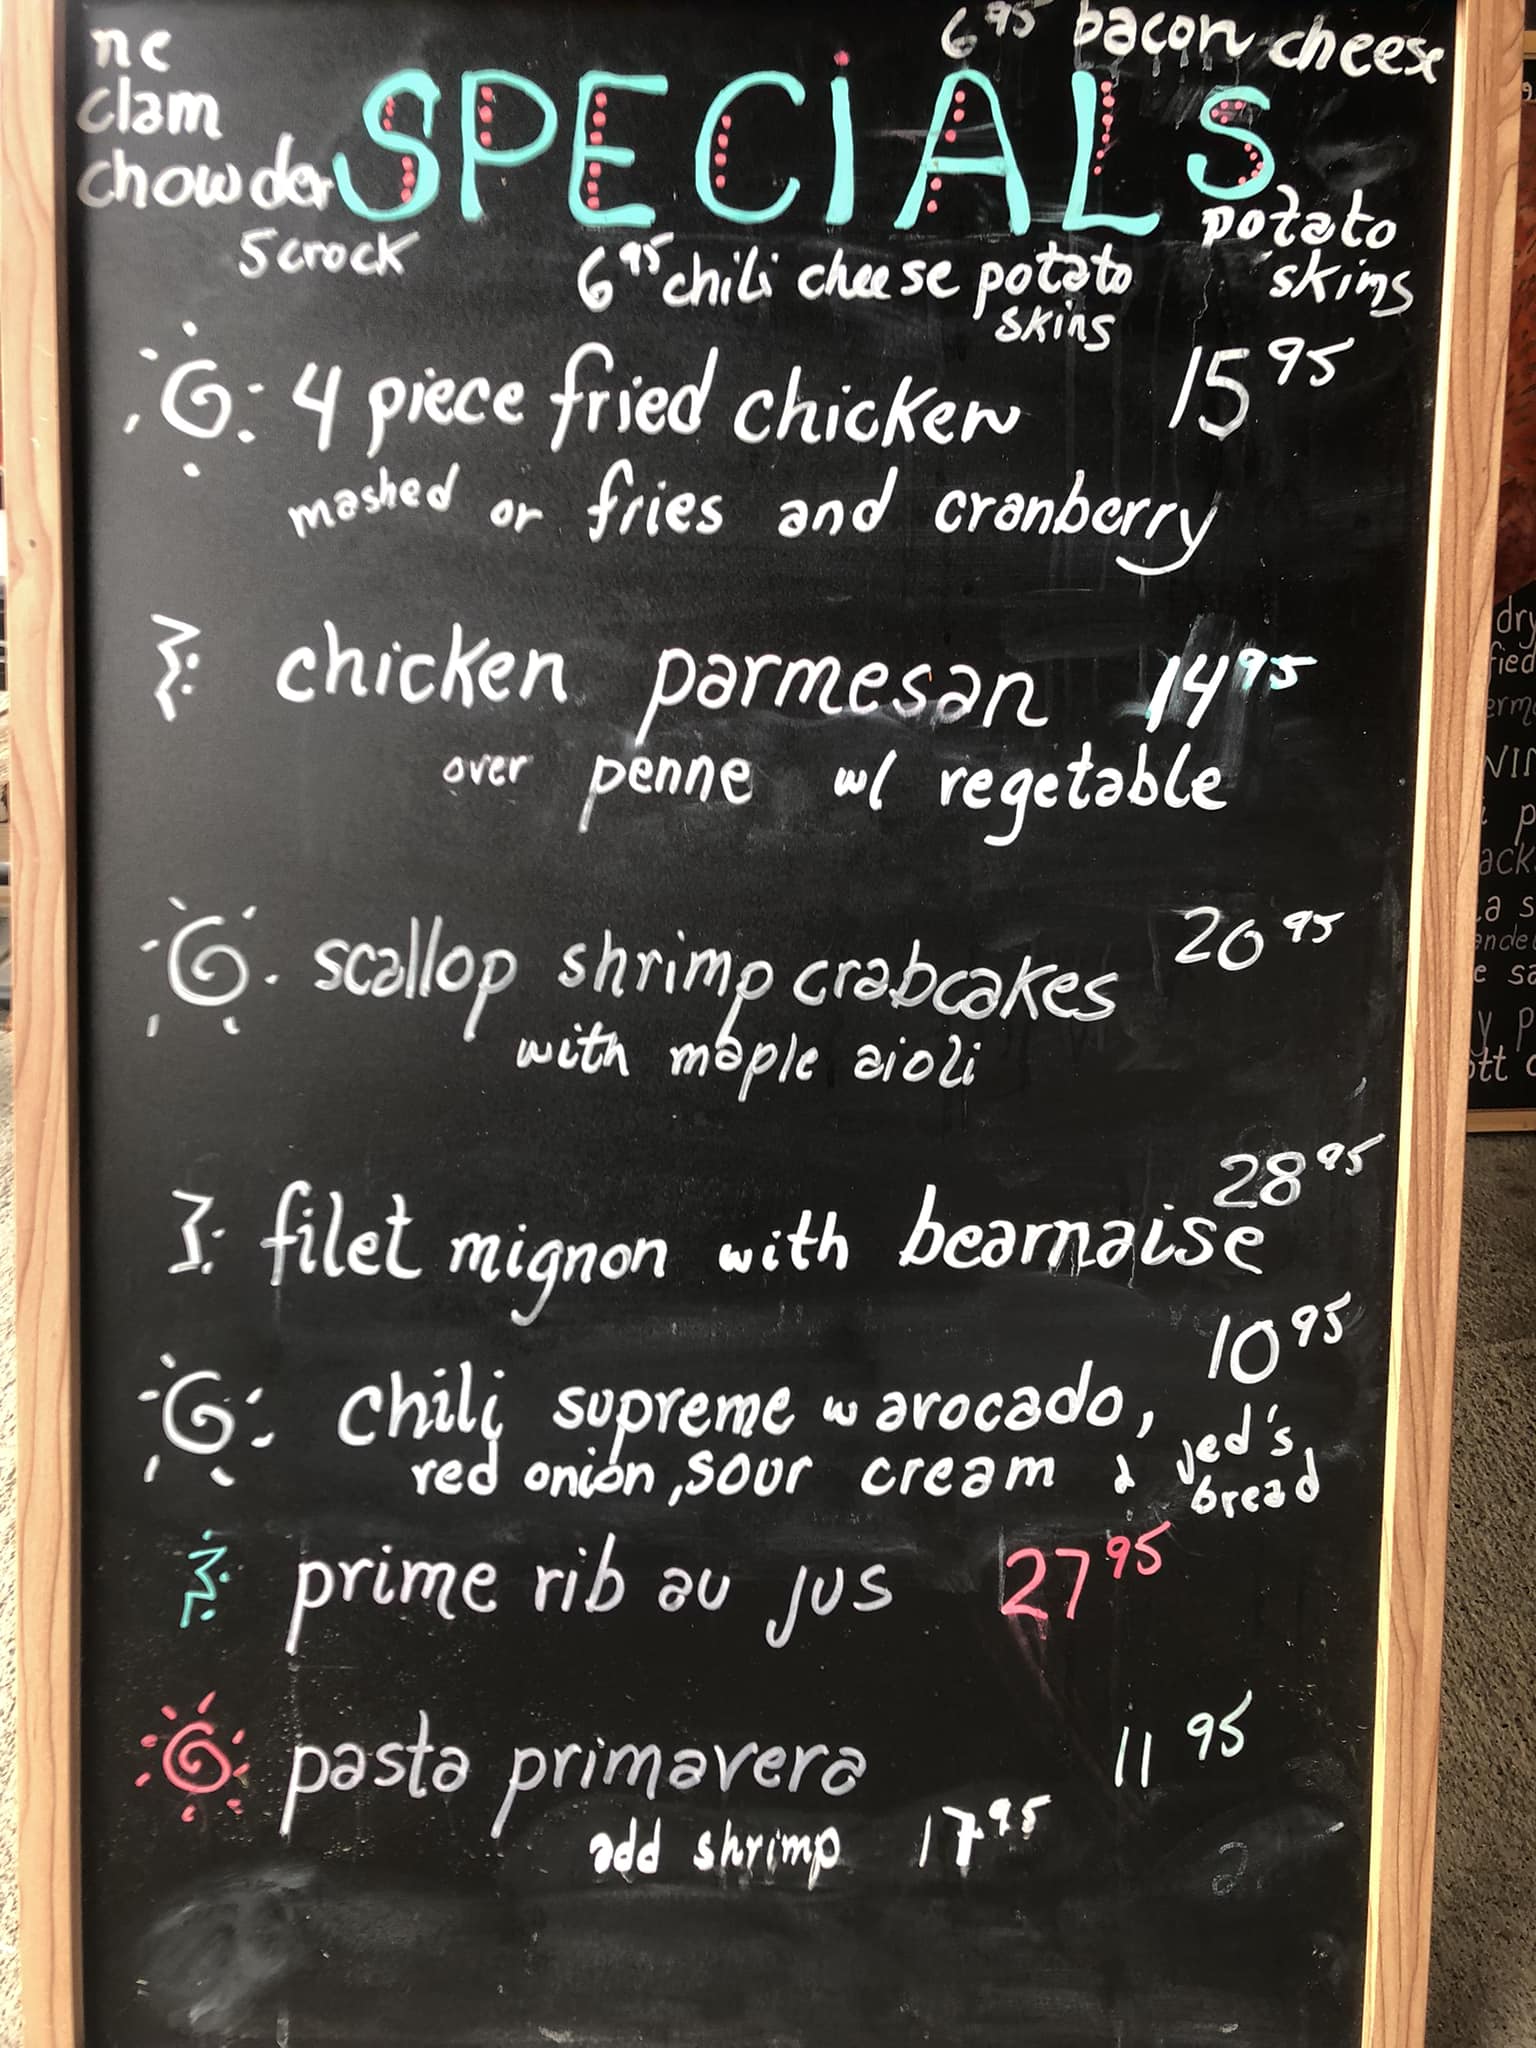 ne
clam
chowder
5 crock
6 95 bacon cheese
potato
skins
SPECIALS
6 95 chili cheese potato
skins
4 piece fried chicken 15 95
mashed or fries and cranberry
chicken parmesan 14 95
over penne w/ vegetable
scallop shrimp crabcakes 20 95
with maple aioli
28 95
filet mignon with bearnaise
10 95
chili supreme w avocado,
red onion, sour cream & jed's
bread
prime rib au jus 27 95
pasta primavera 11 95
add shrimp 17 95